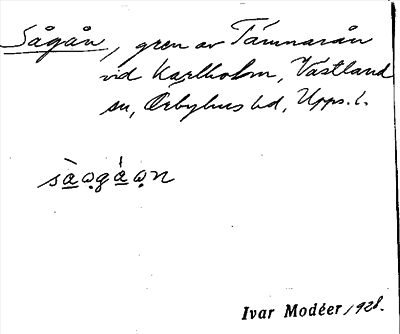 Sågån, gren av Tämnarån
vid Karlholm, Västland
sn, Örbyhus hd, Upps. l.
sàǫgáǫn
Ivar Modéer 1928.